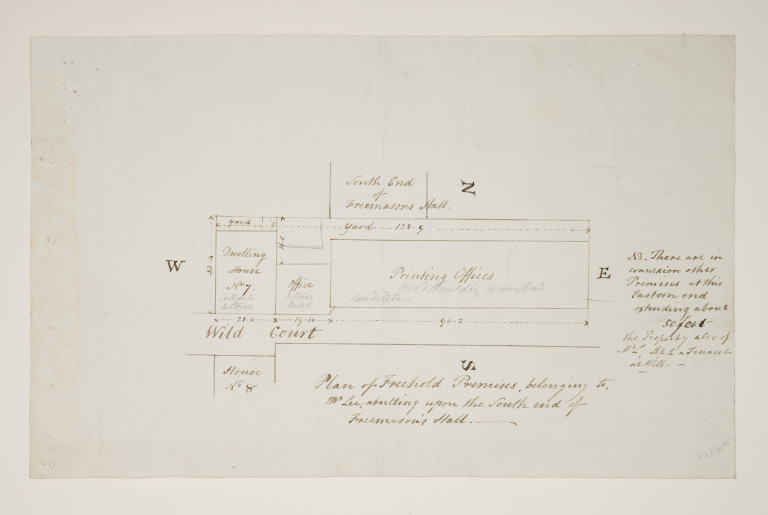 South End
of
Freemasons Hall.
N
Yard
Yard 128.9
W
Dwelling
House
No 7
Office
Printing Offices
E
21.0
19.10
90.2
Wild Court
House
No 8
S
Plan of Freehold Premises, belonging to,
Mr Lee, abutting upon the South end of
Freemason's Hall.
NB. There are in
connexion other
Premises at this
Eastern end
extending about
50 feet
the Property also of
Mr L. Let to a Tenant
at Will.